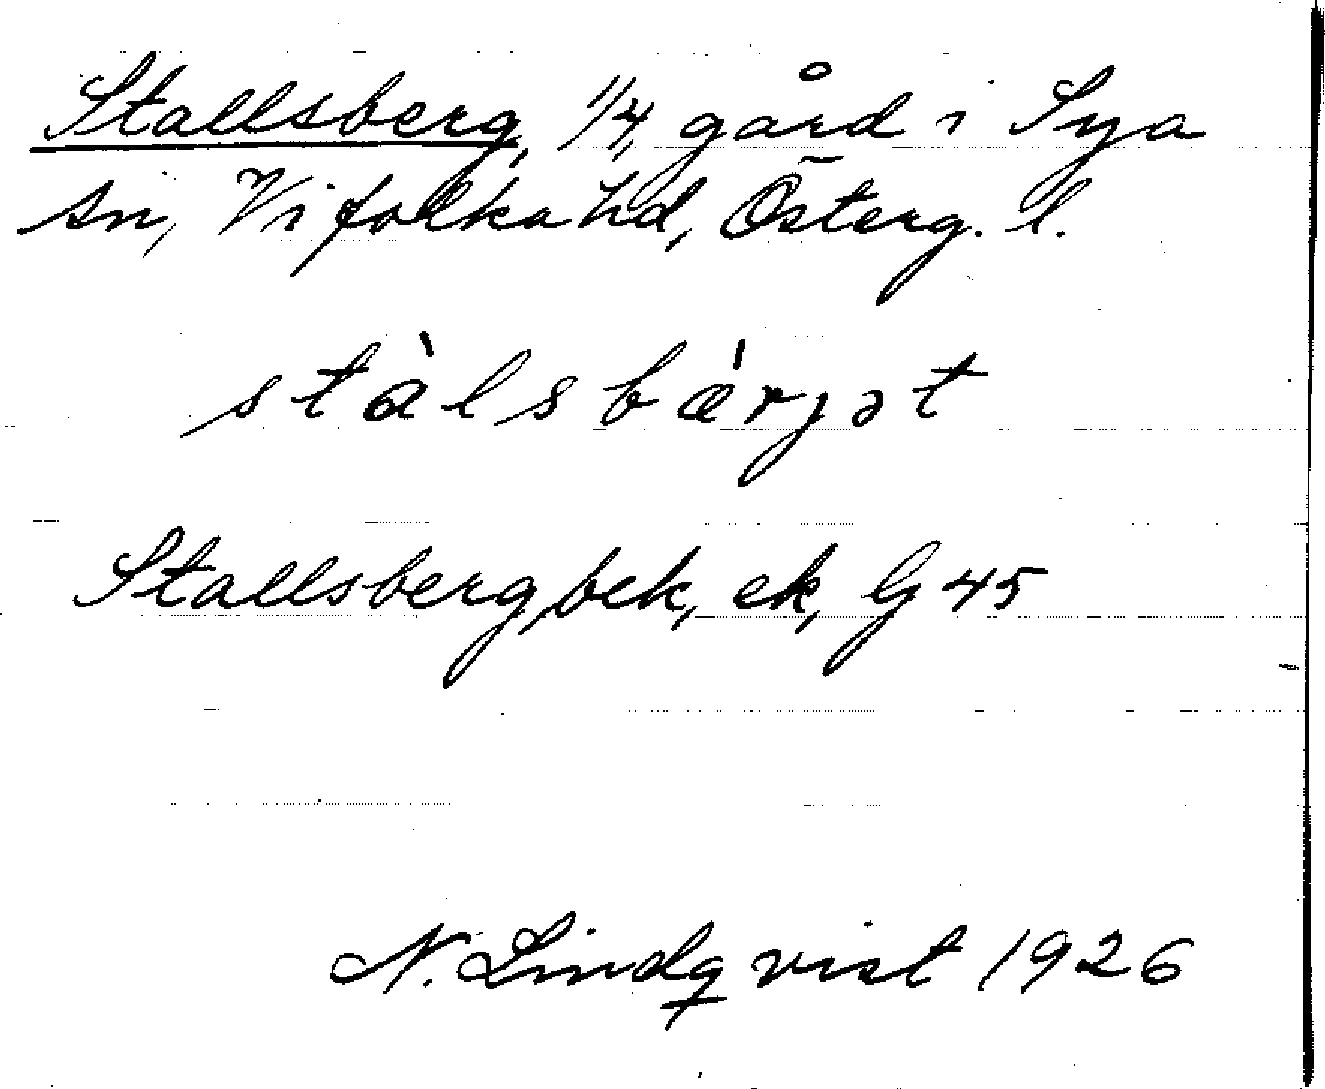 Stallsberg, 1/4, gård i Sya
sn, Vifolka hd, Österg. l.
stàlsbárjət
Stallsberg, bek, ek, G 45
N. Lindqvist 1926